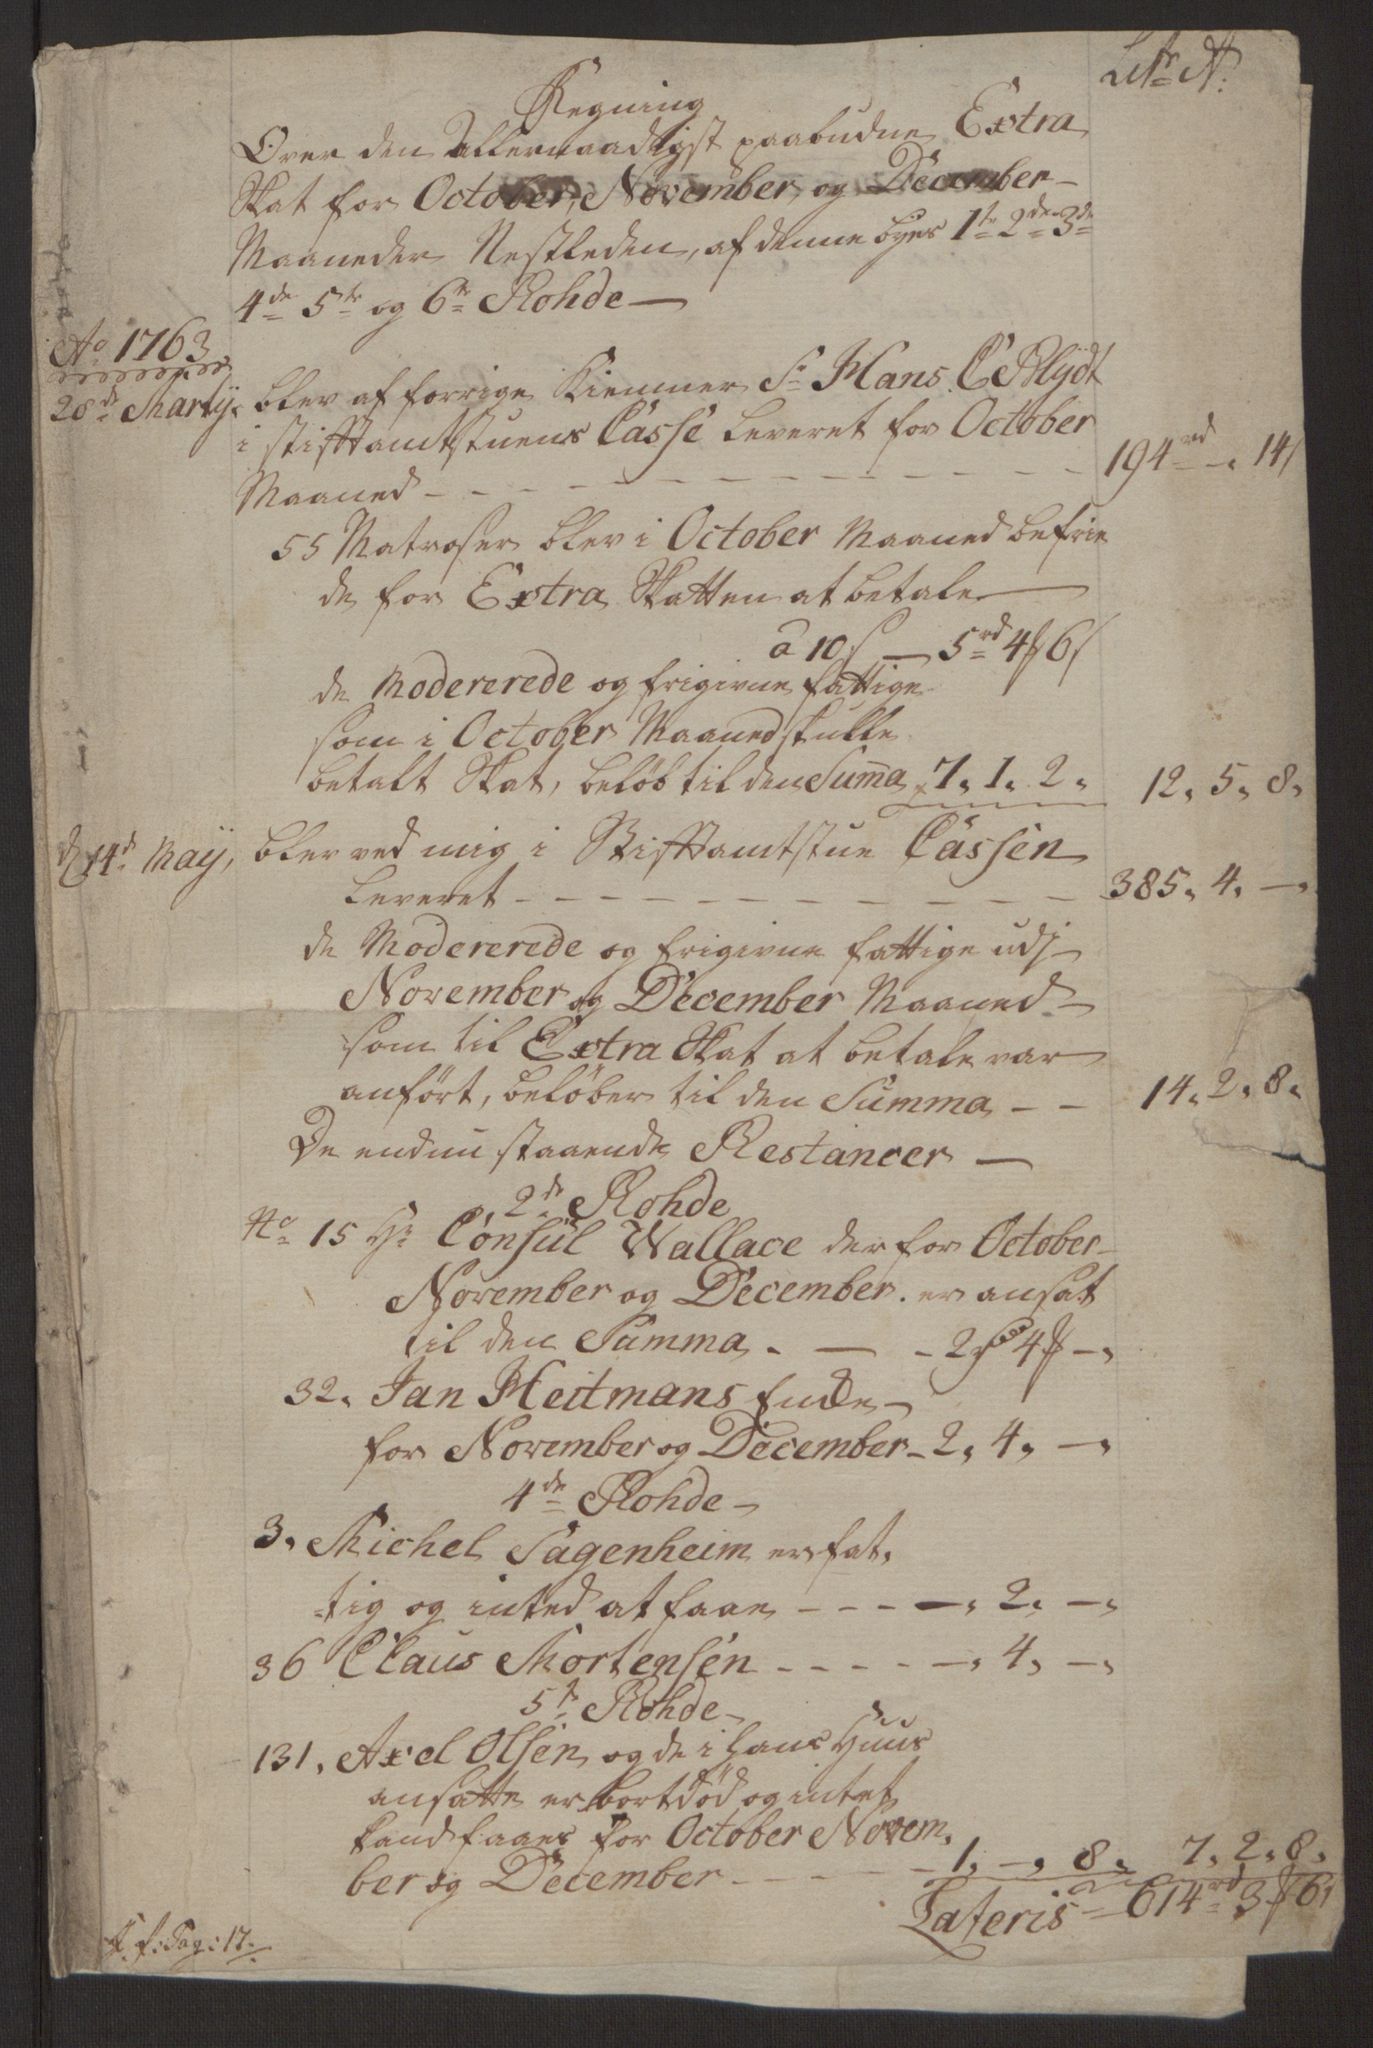 Litr: A:
Regning
Over den Allernaadigst paabudne Extra
Skat for October, November og December
Maaneder Nestleden, af denne byes 1te 2de 3de
4de 5te og 6te Rohde
Ao 1763
28de Martij. blev af forrige Kiemner Sr Hans C Blydt
i stiftamtstuens Casse leveret for October
Maaned - - - 194rd - . 14s
55 Matroser blev i October Maaned befrie
de for Extra Skatten at betale
a 10 s — 5rd 4 # 6 s
de Modererede og frigivne fattige
som i October Maaned skulle
betalt Skat, beløb til den Summa 7. 1. 2. 12. 5. 8.
d 14de Maij, blev ved mig i Stiftamtstue Cassen
leveret - - - 385. 4. —.
de Modererede og frigivne fattige udj
November og December Maaned
som til Extra Skat at betale var
anført, beløber til den Summa - - 14. 2. 8.
De endnu staaende Restancer —
2de Rohde
No 15 Hr Consul Wallace der for October
November og December er ansat
til den Summa . — - 2 4 # —.
32. Jan Heitmans Encke
for November og December - 2. 4. —.
4de Rohde
3. Michel Sagenheim er fat.
tig og inted at faae - - - —. 2. —.
36 Claus Mortensen - - - - —. 4. —.
5te Rohde
131. Axel Olsen og de i hans Huus
ansatte er bortdød og intet
kand faaes for October Novem.
ber og December - - - 1. —. 8. 7. 2. 8.
Lateris 614rd 3 # 6 s
Pag: 17.